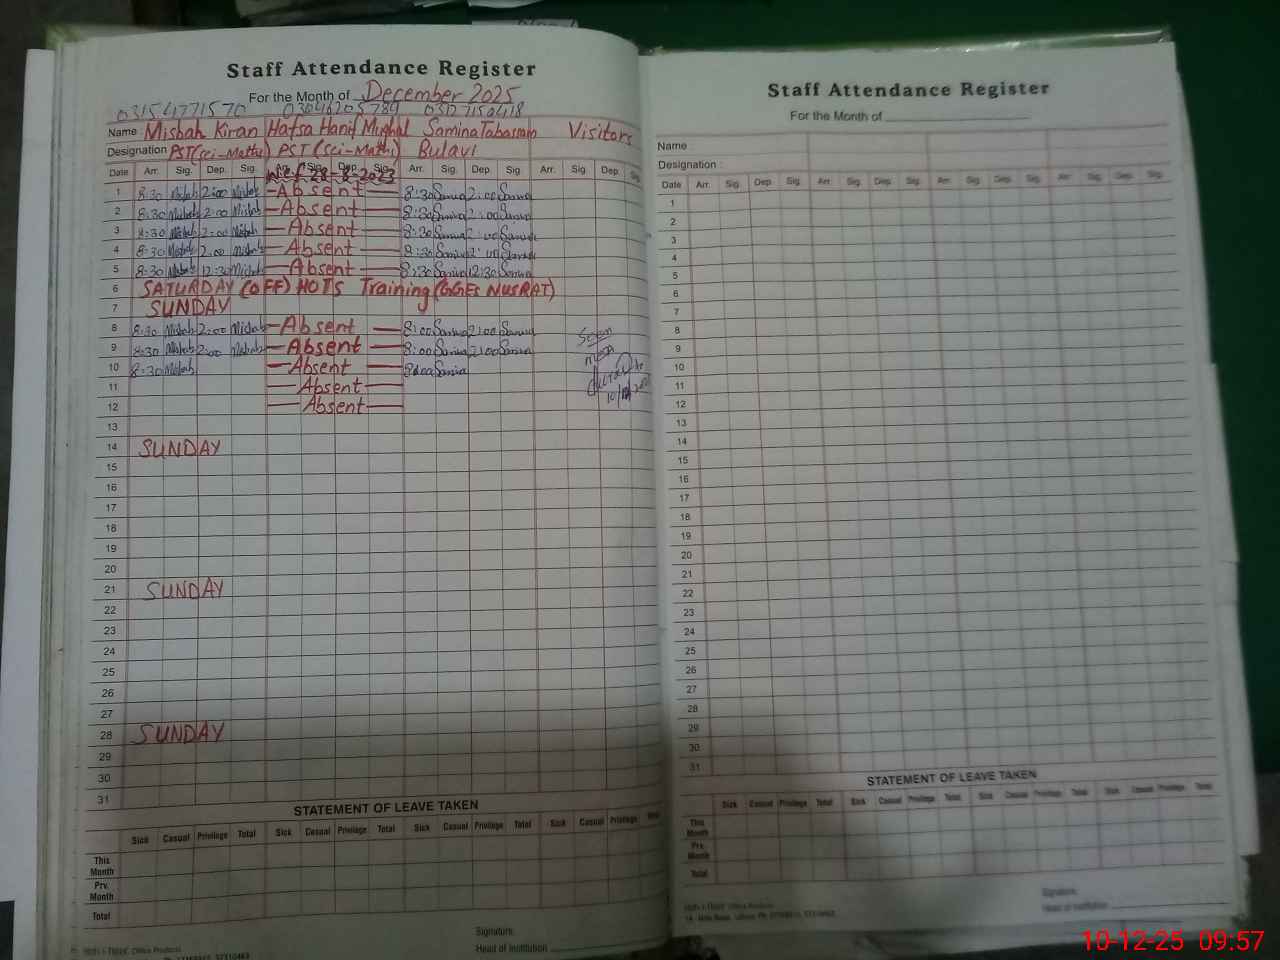 Staff Attendance Register
For the Month of December 2025
03154771570 03046205789 03127150418
Name Misbah Kiran Hafsa Hanif Mughal Samina Tabassam Visitors
Designation PST(Sci-Math) PST (Sci-Math) Bulavi
Date Arr. Sig. Dep. Sig. Arr. Sig. Dep. Sig. Arr. Sig. Dep. Sig. Arr. Sig. Dep. Sig.
w.e.f 28-8-2023
1 8:30 Misbah 2:00 Misbah Absent 8:30 Samina 2:00 Samina
2 8:30 Misbah 2:00 Misbah Absent 8:30 Samina 2:00 Samina
3 8:30 Misbah 2:00 Misbah Absent 8:30 Samina 2:00 Samina
4 8:30 Misbah 2:00 Misbah Absent 8:30 Samina 2:00 Samina
5 8:30 Misbah 12:30 Misbah Absent 8:30 Samina 12:30 Samina
6 SATURDAY (OFF) HOTS Training (GGES NUSRAT)
7 SUNDAY
8 8:30 Misbah 2:00 Misbah Absent 8:00 Samina 2:00 Samina
9 8:30 Misbah 2:00 Misbah Absent 8:00 Samina 2:00 Samina
10 8:30 Misbah Absent 8:00 Samina
Seen
11 Absent
12 Absent
13
14 SUNDAY
15
16
17
18
19
20
21 SUNDAY
22
23
24
25
26
27
28 SUNDAY
29
30
31
STATEMENT OF LEAVE TAKEN
Sick Casual Privilege Total Sick Casual Privilege Total Sick Casual Privilege Total Sick Casual Privilege
This Month
Prv. Month
Total
Signature:
Head of Institution
Staff Attendance Register
For the Month of
Name :
Designation :
Date Arr. Sig. Dep. Sig. Arr. Sig. Dep. Sig. Arr. Sig. Dep. Sig. Arr. Sig. Dep. Sig.
1
2
3
4
5
6
7
8
9
10
11
12
13
14
15
16
17
18
19
20
21
22
23
24
25
26
27
28
29
30
31
STATEMENT OF LEAVE TAKEN
Sick Casual Privilege Total Sick Casual Privilege Total Sick Casual Privilege Total Sick Casual Privilege Total
This Month
Prv. Month
Total
Signature:
Head of Institution
10-12-25 09:57